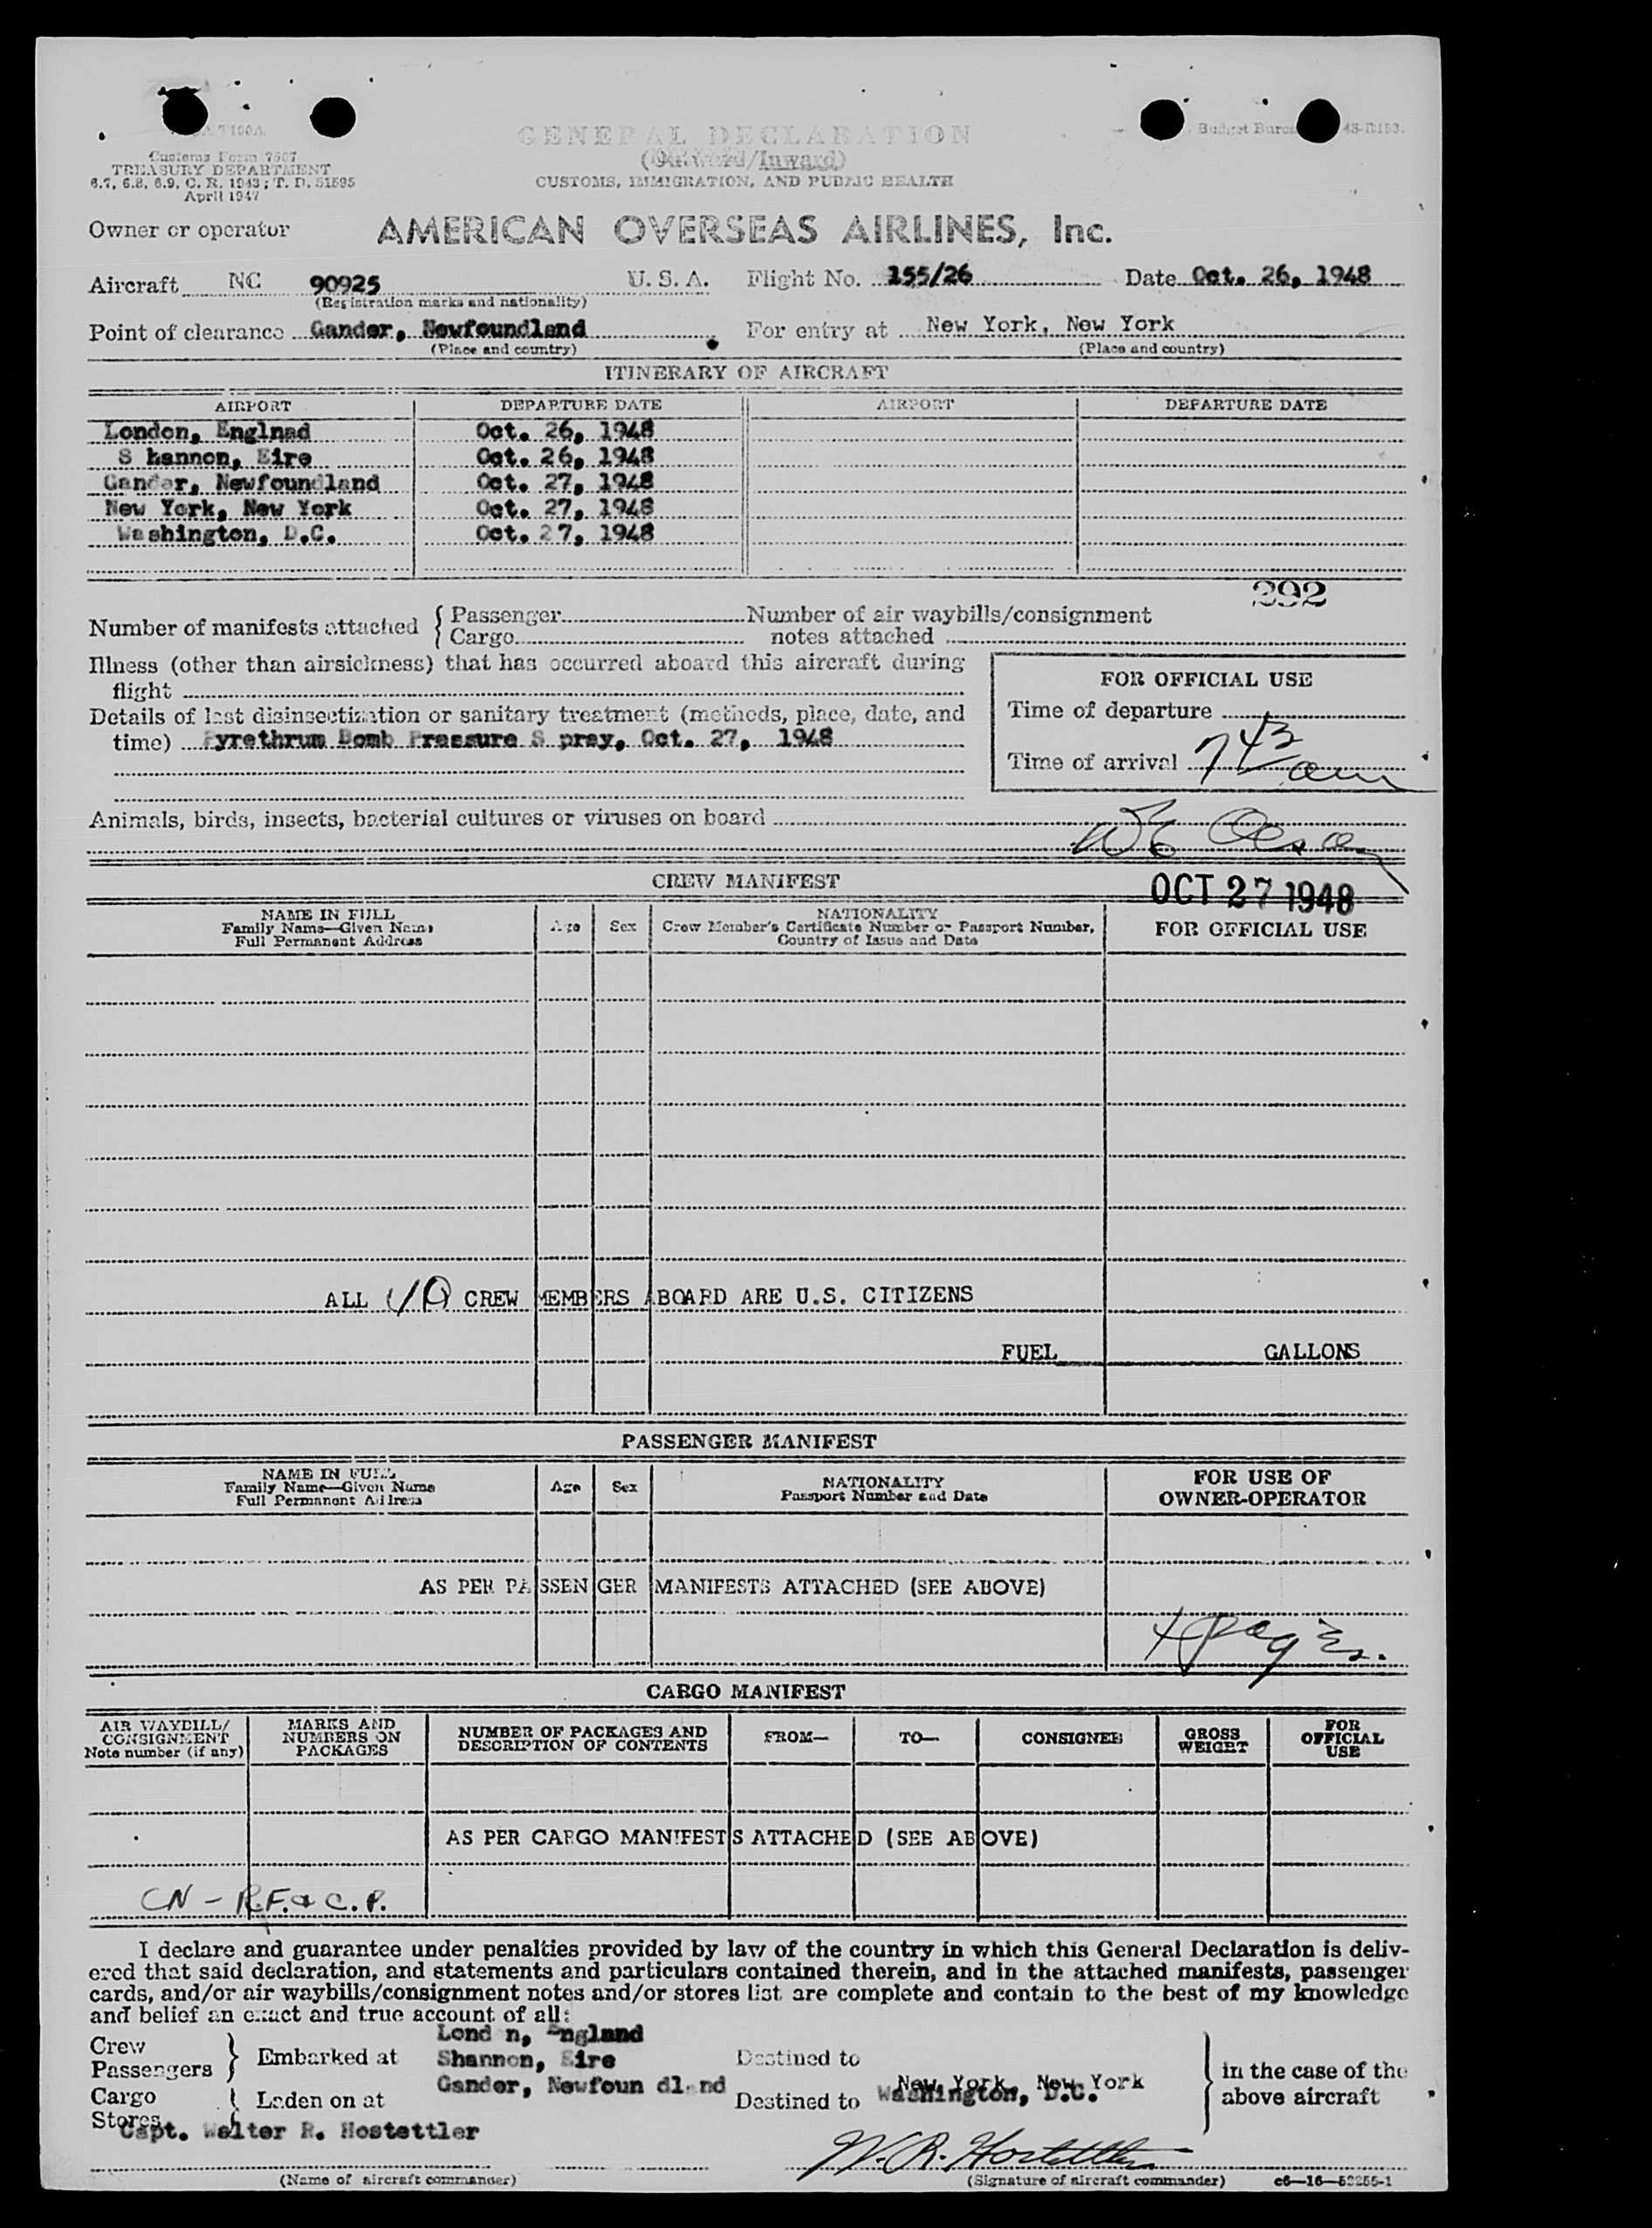 Customs Form 7507
TREASURY DEPARTMENT
6.7, 6.8, 6.9, C. R. 1943; T. D. 51595
April 1947
GENERAL DECLARATION
(Outward/Inward)
CUSTOMS, IMMIGRATION, AND PUBLIC HEALTH
Budget Bureau 48-R153.
Owner or operator AMERICAN OVERSEAS AIRLINES, Inc.
Aircraft NC 90925 U. S. A. Flight No. 155/26 Date Oct. 26, 1948
(Registration marks and nationality)
Point of clearance Gander, Newfoundland For entry at New York, New York
(Place and country) (Place and country)
ITINERARY OF AIRCRAFT
AIRPORT DEPARTURE DATE AIRPORT DEPARTURE DATE
London, Englnad Oct. 26, 1948
S hannon, Eire Oct. 26, 1948
Gander, Newfoundland Oct. 27, 1948
New York, New York Oct. 27, 1948
Washington, D.C. Oct. 27, 1948
292
Number of manifests attached { Passenger Number of air waybills/consignment
Cargo notes attached
Illness (other than airsickness) that has occurred aboard this aircraft during
flight
Details of last disinsectization or sanitary treatment (methods, place, date, and
time) Pyrethrum Bomb Pressure S pray, Oct. 27, 1948
FOR OFFICIAL USE
Time of departure
Time of arrival 743 am
Animals, birds, insects, bacterial cultures or viruses on board
CREW MANIFEST
OCT 27 1948
NAME IN FULL
Family Name—Given Name
Full Permanent Address
Age
Sex
NATIONALITY
Crew Member's Certificate Number or Passport Number,
Country of Issue and Date
FOR OFFICIAL USE
ALL 10 CREW MEMBERS ABOARD ARE U.S. CITIZENS
FUEL GALLONS
PASSENGER MANIFEST
NAME IN FULL
Family Name—Given Name
Full Permanent Address
Age
Sex
NATIONALITY
Passport Number and Date
FOR USE OF
OWNER-OPERATOR
AS PER PASSENGER MANIFESTS ATTACHED (SEE ABOVE)
CARGO MANIFEST
AIR WAYBILL/
CONSIGNMENT
Note number (if any)
MARKS AND
NUMBERS ON
PACKAGES
NUMBER OF PACKAGES AND
DESCRIPTION OF CONTENTS
FROM—
TO—
CONSIGNEE
GROSS
WEIGHT
FOR
OFFICIAL
USE
AS PER CARGO MANIFESTS ATTACHED (SEE ABOVE)
CN - R.F. & C.P.
I declare and guarantee under penalties provided by law of the country in which this General Declaration is deliv-
ered that said declaration, and statements and particulars contained therein, and in the attached manifests, passenger
cards, and/or air waybills/consignment notes and/or stores list are complete and contain to the best of my knowledge
and belief an exact and true account of all:
Crew
Passengers } Embarked at
Lond n, England
Shannon, Eire
Gander, Newfoun dland
Destined to
New York, New York
Cargo
Stores { Laden on at
Destined to Washington, D.C.
} in the case of the
above aircraft
Capt. Walter R. Hostettler
W. R. Hostettler
(Name of aircraft commander) (Signature of aircraft commander) c6—16—52255-1